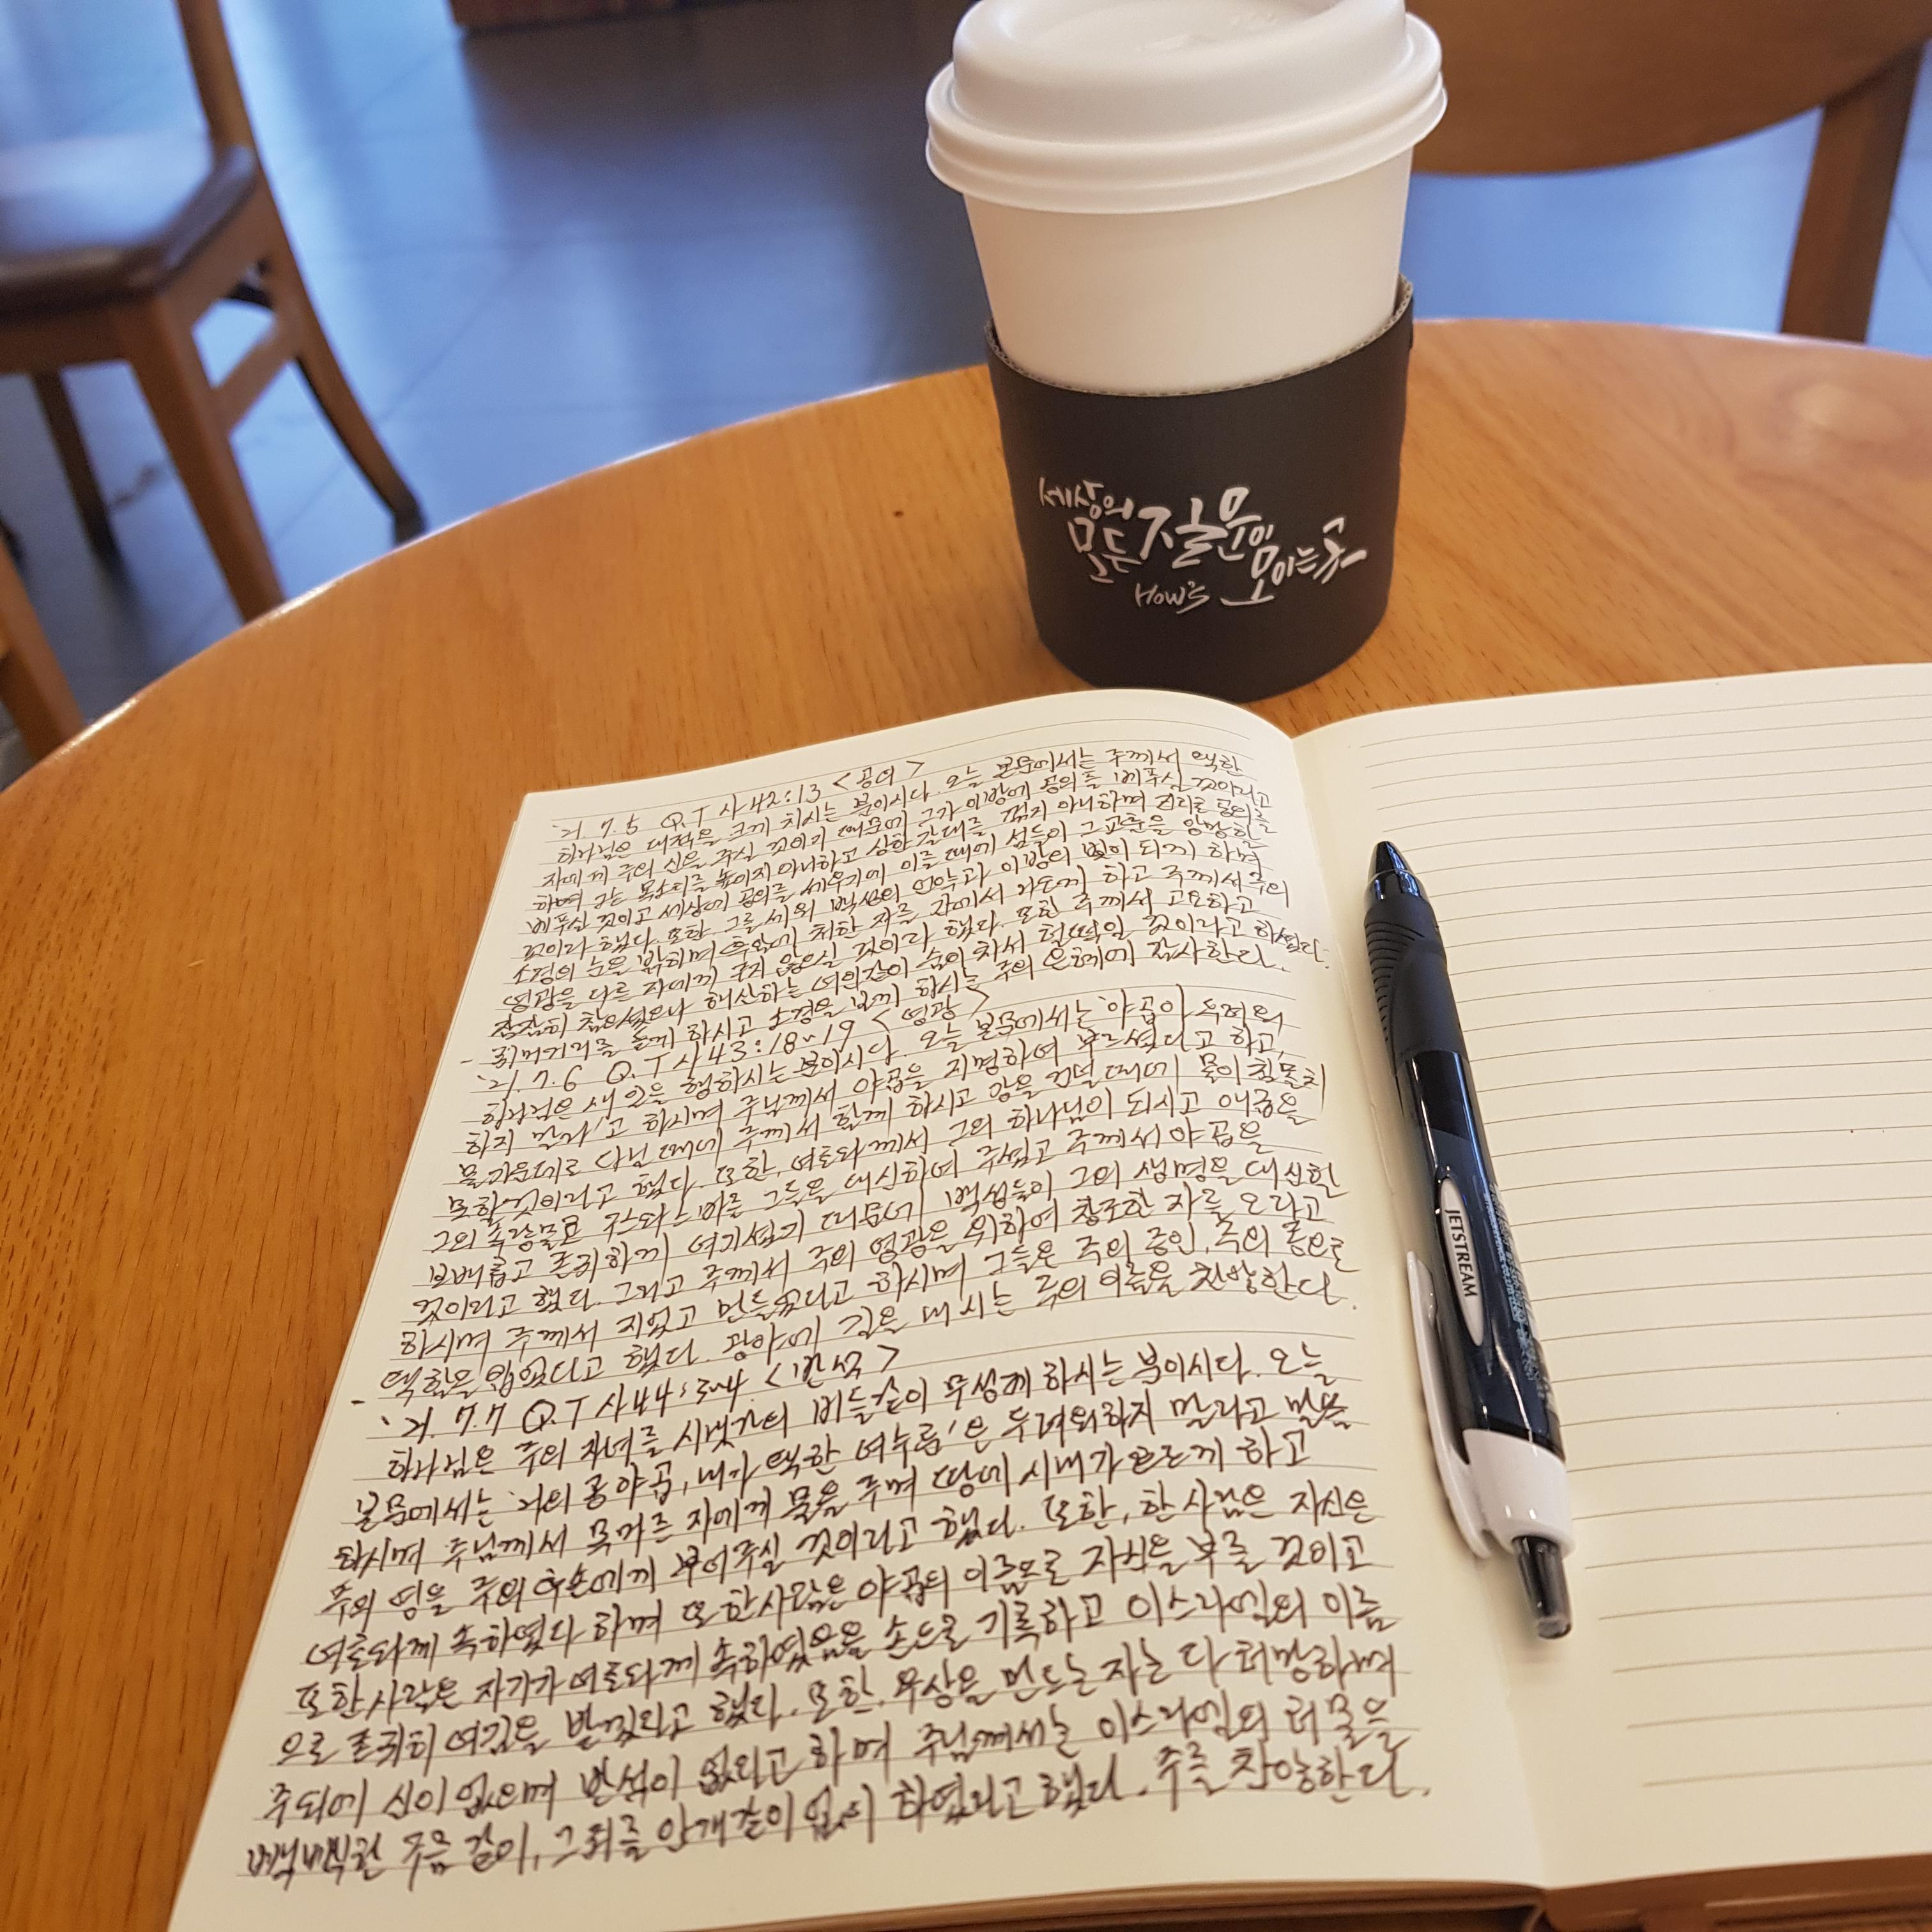 세상의
모든 질문이
모이는 곳
How's
'21. 7. 5 Q.T 사42:13 <공의>
하나님은 대적을 크게 치시는 분이시다. 오늘 본문에서는 주께서 택한
자에게 주의 신을 주실 것이기 때문에 그가 이방에 공의를 베푸실 것이라고
하며 그는 목소리를 높이지 아니하고 상한 갈대를 꺾지 아니하며 진리로 공의를
베푸실 것이고 세상에 공의를 세우기에 이를 때에 섬들이 그 교훈을 앙망할
것이라 했다. 또한, 그를 세워 백성의 언약과 이방의 빛이 되게 하며
소경의 눈을 밝히며 흑암에 처한 자를 간에서 나오게 하고 주께서 주의
영광을 다른 자에게 주지 않으실 것이라 했다. 또한 주께서 고요하고
잠잠히 참으셨으나 해산하는 여인같이 숨이 차서 헐떡일 것이라고 하셨다.
- 귀머거리를 듣게 하시고 소경을 보게 하시는 주의 은혜에 감사한다.
'21. 7. 6 Q.T 사43:18~19 <영광>
하나님은 새 일을 행하시는 분이시다. 오늘 본문에서는 '야곱아 두려워
하지 말라'고 하시며 주님께서 야곱을 지명하여 부르셨다고 하고,
물 가운데로 다닐 때에 주께서 함께 하시고 강을 건널 때에 물이 침몰치
못할 것이라고 했다. 또한, 여호와께서 그의 하나님이 되시고 애굽을
그의 속량물로 구스와 스바를 그들을 대신하여 주셨고 주께서 야곱을
보배롭고 존귀하게 여기셨기 때문에 백성들이 그의 생명을 대신할
것이라고 했다. 그리고 주께서 주의 영광을 위하여 창조한 자를 오라고
하시며 주께서 지었고 만들었다고 하시며 그들은 주의 증인, 주의 종으로
택함을 입었다고 했다. 광야에 길을 내시는 주의 이름을 찬양한다.
- '21. 7. 7 Q.T 사44:3~4 <반석>
하나님은 주의 자녀를 시냇가의 버들같이 무성케 하시는 분이시다. 오늘
본문에서는 '나의 종 야곱, 내가 택한 여수룬'은 두려워하지 말라고 말씀
하시며 주님께서 목마른 자에게 물을 주며 땅에 시내가 흐르게 하고
주의 영을 주의 후손에게 부어주실 것이라고 했다. 또한, 한 사람은 자신은
여호와께 속하였다 하며 또 한 사람은 야곱의 이름으로 자신을 부를 것이고
또 한 사람은 자기가 여호와께 속하였음을 손으로 기록하고 이스라엘의 이름
으로 존귀히 여김을 받겠다고 했다. 또한, 우상을 만드는 자는 다 허망하며
주 외에 신이 없으며 반석이 없다고 하며 주님께서는 이스라엘의 허물을
빽빽한 구름 같이, 그 죄를 안개같이 없이 하였다고 했다. 주를 찬양한다.
JETSTREAM